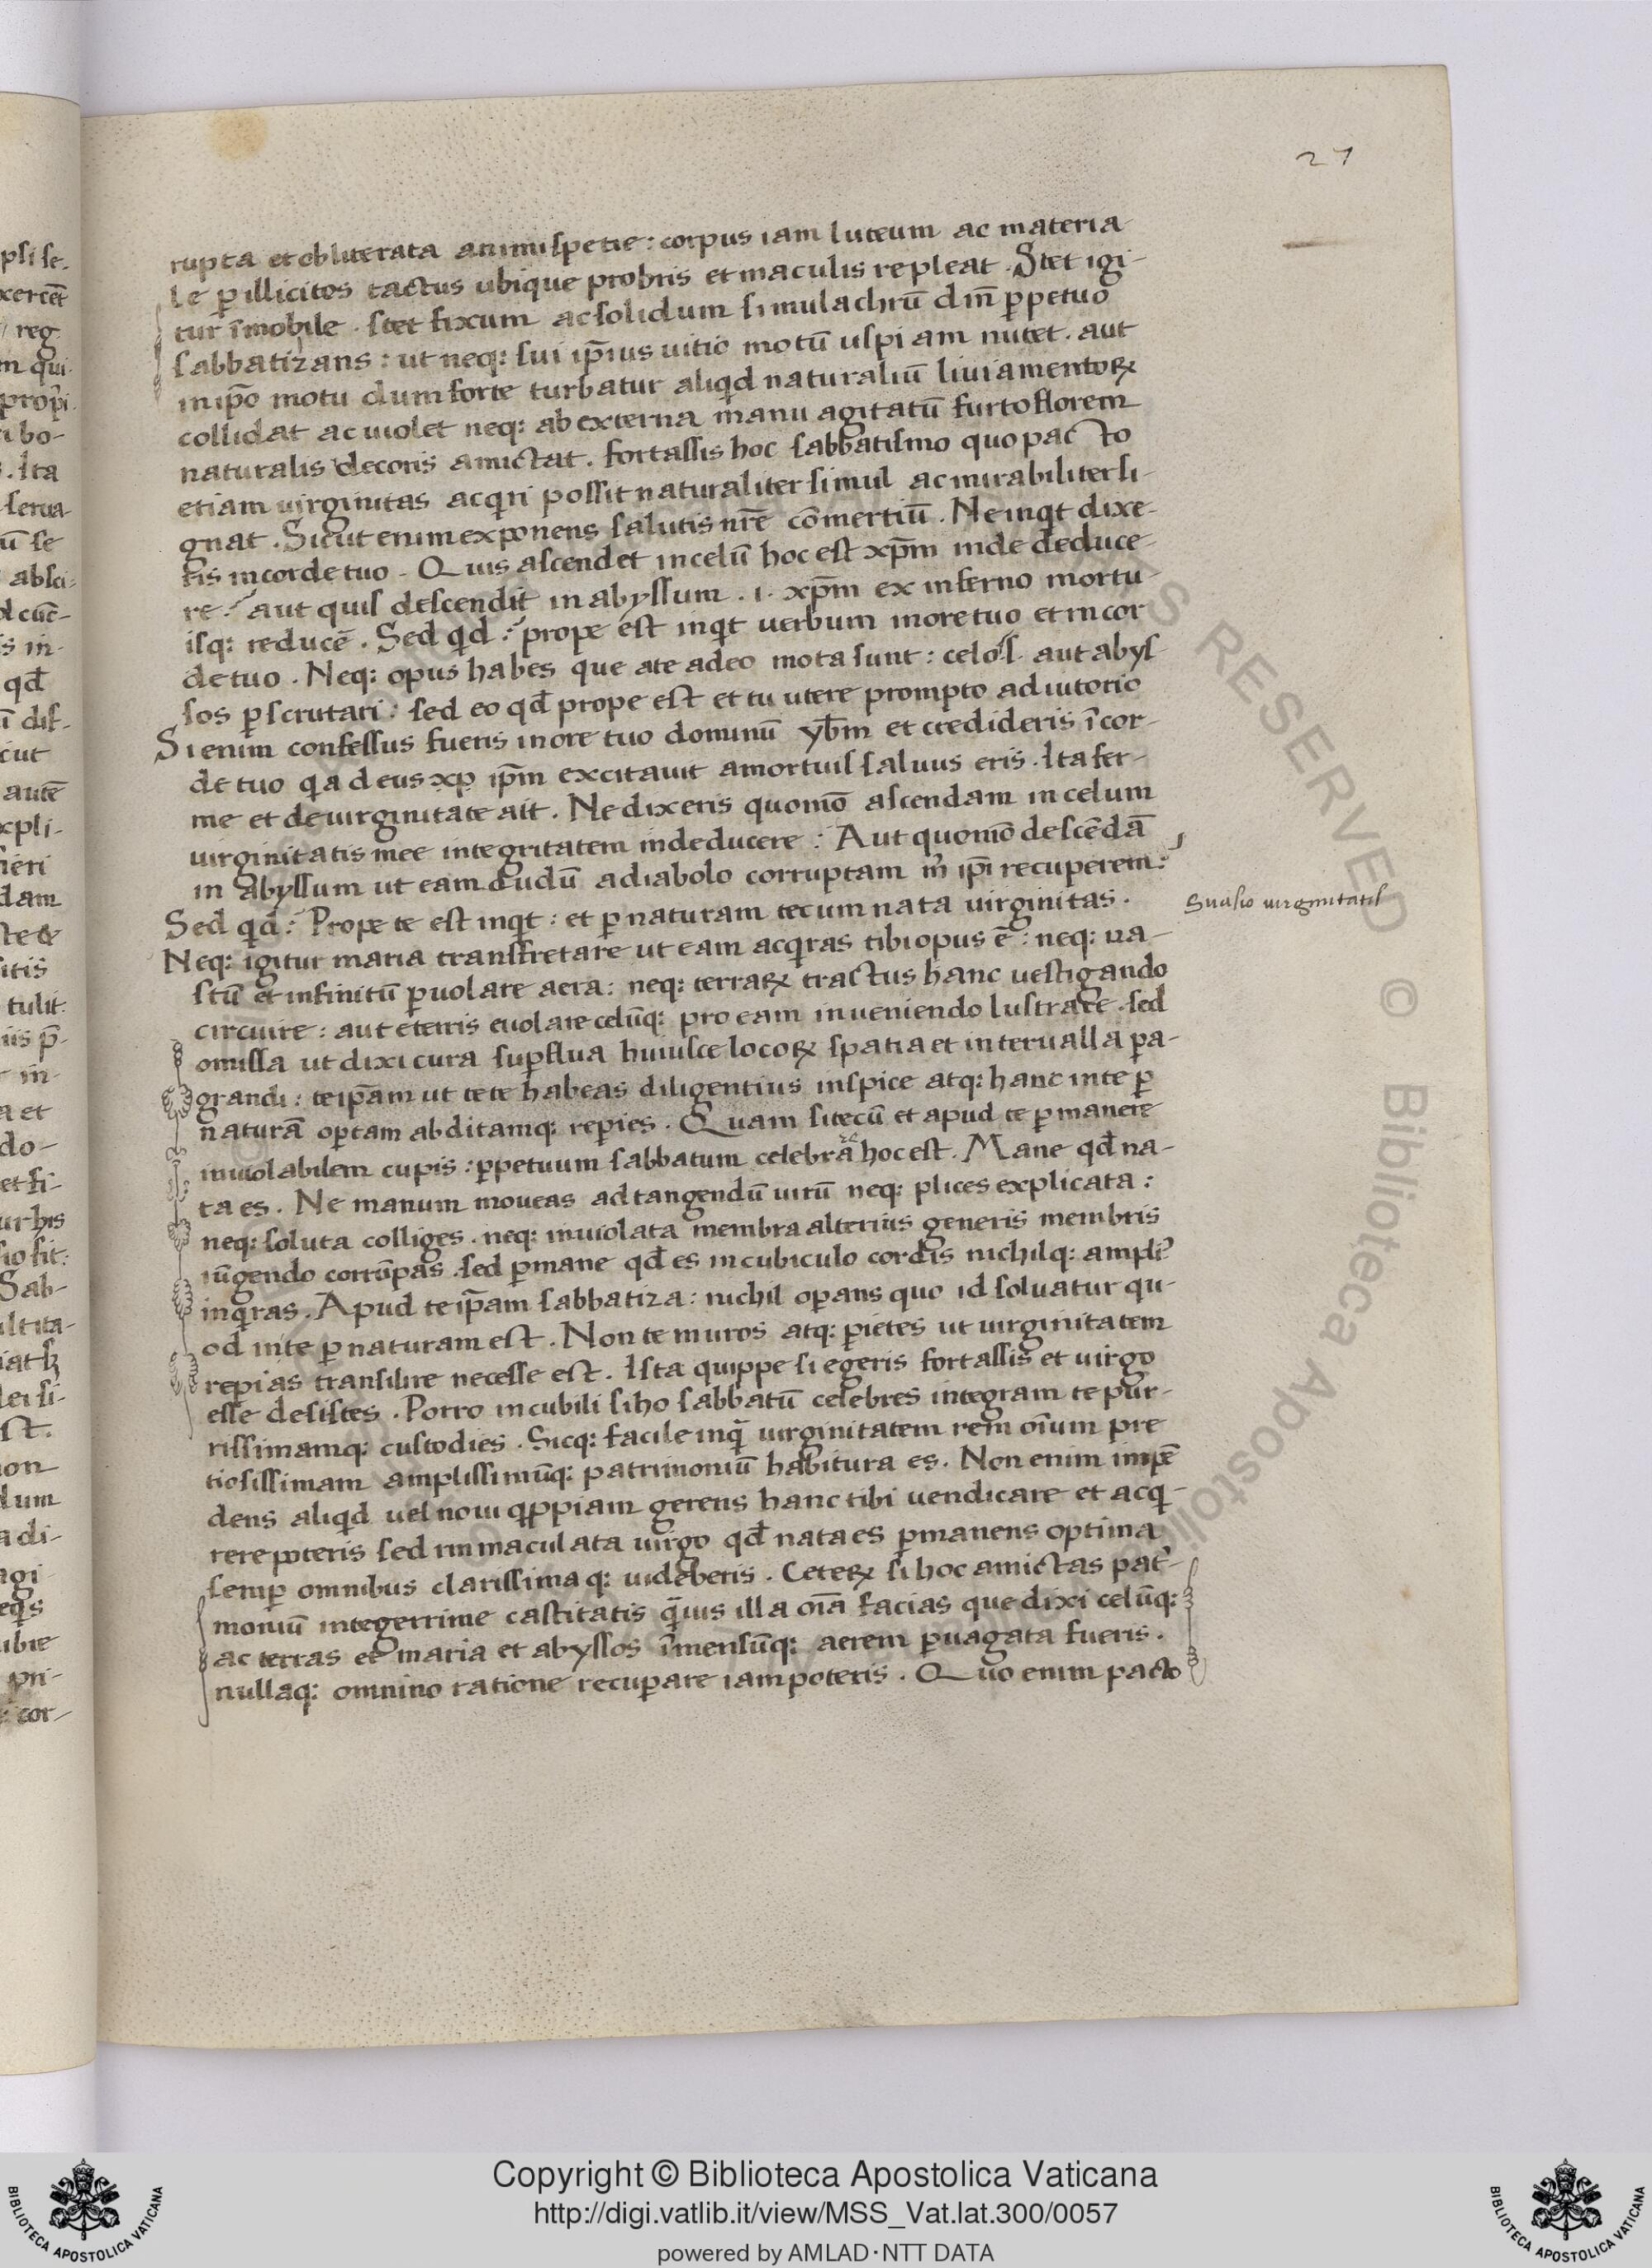 27
rupta et obliterata animi spetie: corpus iam luteum ac materia-
le ꝑ illicitos tactus ubique probris et maculis repleat. Stet igi-
tur ĩmobile. stet fixcum ac solidum simulachrũ dm̃ ꝑpetuo
sabbatizans: ut neq: sui ip̃ius uitio motũ uspiam nutet. aut
in ip̃o motu dum forte turbatur aliqd naturaliũ liuiamentoꝝ
collidat ac uiolet neq: ab externa manu agitatũ furto florem
naturalis decoris amictat. fortassis hoc sabbatismo quo pacto
etiam uirginitas acqri possit naturaliter simul ac mirabiliter si-
gnat. Sicut enim exponens salutis nr̃e cõmertiũ. Ne inqt dixe-
ris in corde tuo. Quis ascendet in celũ hoc est xp̃m inde deduce-
re: aut quis descendit in abyssum .i. xp̃m ex inferno mortu-
isq: reducẽ. Sed qd: prope est inqt uerbum in ore tuo et in cor
de tuo. Neq: opus habes que a te adeo mota sunt: celos. aut abys-
sos ꝑscrutari: sed eo qd̃ prope est et tu utere prompto adiutorio
Si enim confessus fueris in ore tuo dominũ yh̃m et credideris ĩ cor-
de tuo qa deus xp̃ ip̃m excitauit a mortuis saluus eris. Ita fer-
me et de uirginitate ait. Ne dixeris quomõ ascendam in celum
uirginitatis mee integritatem inde ducere: Aut quomõ descẽdã
in abyssum ut eam dudũ a diabolo corruptam m̃ ip̃i recuperem:
Sed qd: Prope te est inqt: et ꝑ naturam tecum nata uirginitas.
Suasio uirginitatis
Neq: igitur maria transfretare ut eam acqras tibi opus ẽ: neq: ua-
stũ et infinitũ ꝑuolare aera: neq: terraꝝ tractus hanc uestigando
circuire: aut e terris euolare celũq: pro eam inueniendo lustrare. sed
omissa ut dixi cura suꝑflua huiusce locoꝝ spatia et interualla ꝑa-
grandi: teip̃am ut te te habeas diligentius inspice atq: hanc in te ꝑ
naturã optam abditamq: reꝑies. Quam si tecũ et apud te ꝑmanere
inuiolabilem cupis: ꝑpetuum sabbatum celebrã hoc est. Mane qd̃ na-
ta es. Ne manum moueas ad tangendũ uirũ neq: plices explicata:
neq: soluta colliges. neq: inuiolata membra alterius generis membris
iũgendo corrũpas. sed ꝑmane qd̃ es in cubiculo cordis nichilq: ampli9
inqras. Apud teip̃am sabbatiza: nichil oꝑans quo id soluatur qu-
od in te ꝑ naturam est. Non te muros atq: ꝑietes ut uirginitatem
reꝑias transilire necesse est. Ista quippe si egeris fortassis et uirgo
esse desistes. Porro in cubili si ho sabbatũ celebres integram te pur-
rissimamq: custodies. Sicq: facile inq̃ uirginitatem rem oĩum pre
tiosissimam amplissimũq: patrimoniũ habitura es. Non enim impẽ
dens aliqd uel noui qppiam gerens hanc tibi uendicare et acq-
rere poteris sed immaculata uirgo qd̃ nata es ꝑmanens optima
semꝑ omnibus clarissimaq: uideberis. Ceteꝝ si hoc amictas pat-
moniũ integerrime castitatis q̃uis illa oĩa facias que dixi celũq:
ac terras et maria et abyssos ĩmensũq: aerem ꝑuagata fueris.
nullaq: omnino ratione recuꝑare iam poteris. Quo enim pacto
Copyright © Biblioteca Apostolica Vaticana
http://digi.vatlib.it/view/MSS_Vat.lat.300/0057
powered by AMLAD·NTT DATA